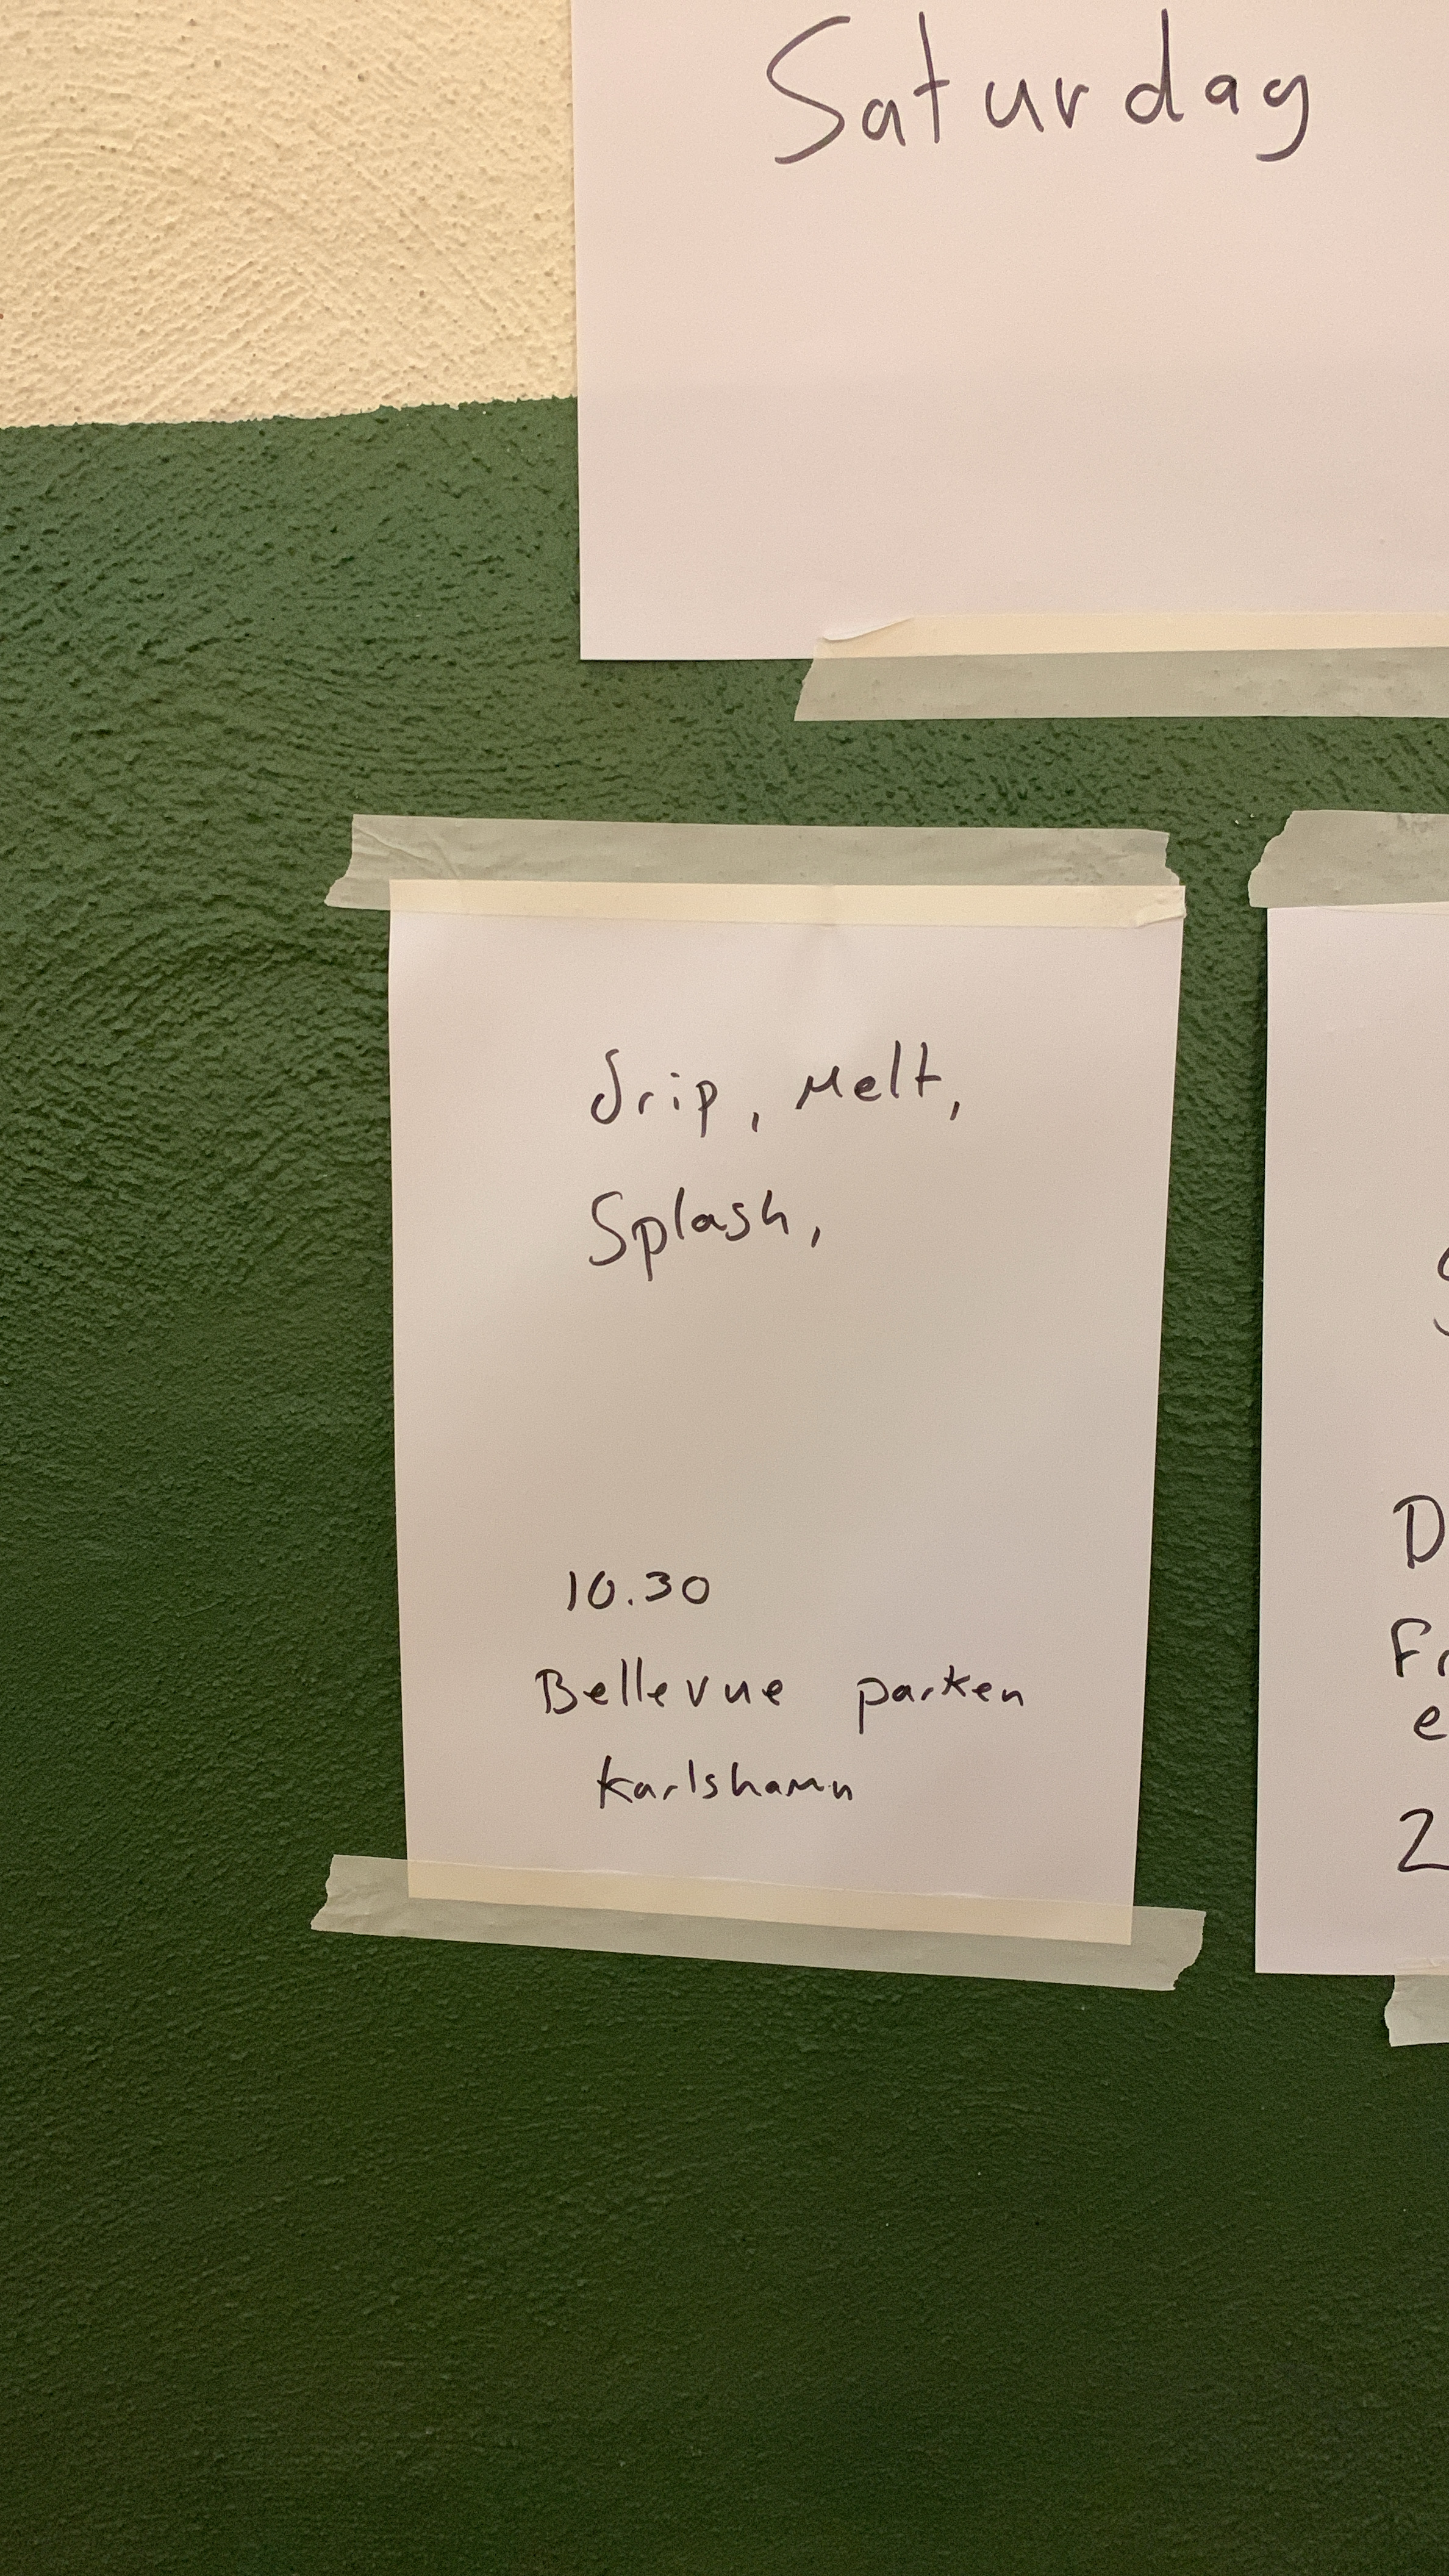 Saturday
Drip, Melt,
Splash,
10.30
Bellevue parken
Karlshamn
D
Fr
e
2